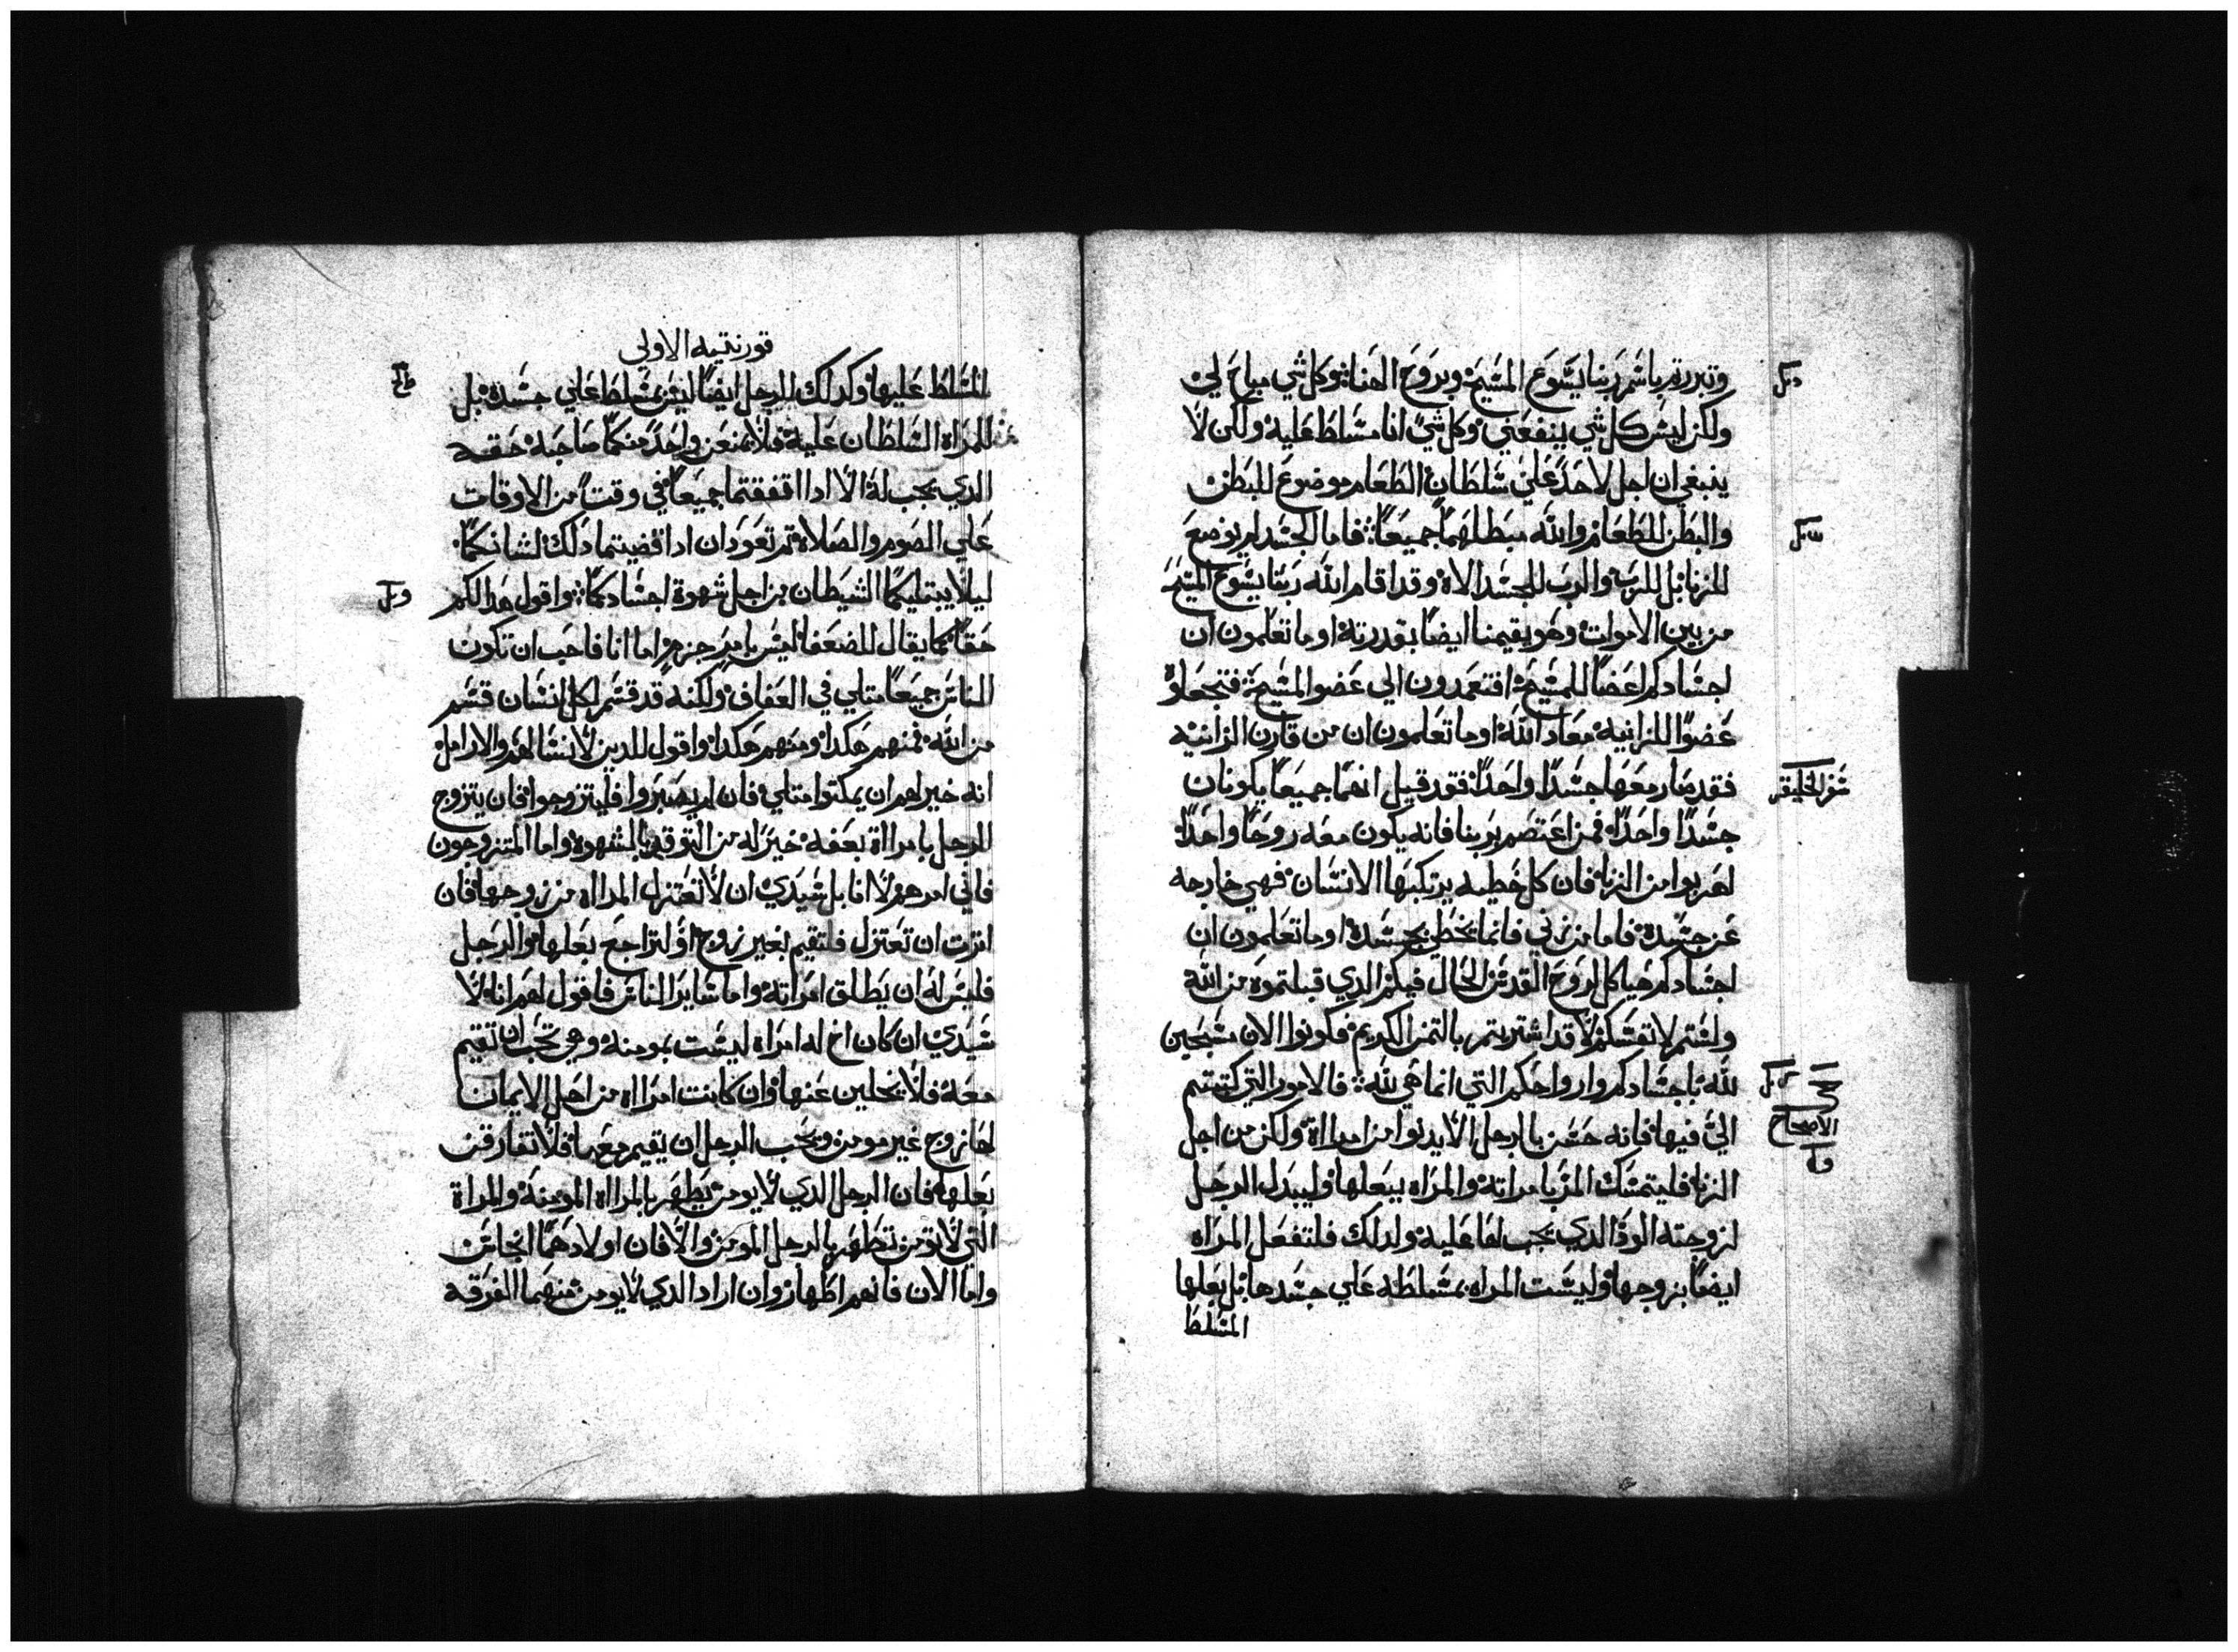 وتبررتم باسم ربنا يسوع المسيح وبروح الهنا وكل شي مباح لي
ولكن ليس كل شي ينفعني وكل شي انا مسلط عليه ولكن لا
ينبغي ان اجل لاحد علي سلطان الطعام موضوع للبطن
والبطن للطعام والله مبطلهما جميعا فاما الجسد لم يوضع
للزنا بل للرب والرب للجسد الاه وقد اقام الله ربنا يسوع المسيح
من بين الاموات وهو يقيمنا ايضا بقدرته اوما تعلمون ان
اجسادكم اعضا للمسيح افتعمدون الي عضو المسيح فتجعلوه
عضوا للزانيه معاد الله اوما تعلمون ان من قارن الزانيه
فقد صار معها جسدا واحدا فقد قيل انهما جميعا يكونان
جسدا واحدا فمن اعتصم بربنا فانه يكون معه روحا واحدا
اهربوا من الزنا فان كل خطيه يرتكبها الانسان فهي خارجه
عن جسده فاما من زني فانما يخطي بجسده اوما تعلمون ان
اجسادكم هياكل لروح القدس الحال فيكم الدي قبلتموه من الله
ولستم لانفسكم لا قد اشتريتم بالتمن الكريم فكونوا الان مسبحين
لله باجسادكم وارواحكم التي انما هي لله فالامور التي كتبتم
الي فيها فانه حسن بالرجل الا يدنوا من امراة ولكن من اجل
الزنا فليتمسك المرء بامراته والمراه ببعلها وليبدل الرجل
لزوجته الود الدي يجب لها عليه ولدلك فلتفعل المراه
ايضا بزوجها وليست المراه بمسلطه علي جسدها بل بعلها
المسلط
سفر الخليقه
الاصحاح
قورنتيه الاولي
المسلط عليها وكدلك الرجل ايضا ليس بمسلط علي جسده بل
للمراه السلطان عليه فلا يمنعن واحد منكما صاحبه حقه
الدي يجب له الا ادا اتفقتما جميعا في وقت من الاوقات
علي الصوم والصلاة تم تعودان ادا قضيتما دلك لشانكما
ليلا يبتليكما الشيطان من اجل شهوة اجسادكما واقول هدا لكم
حقا كما يقال للضعفا ليس بامر جزم اما انا فاحب ان تكون
الناس جميعا متلي في العفاف ولكنه قد قسم لكل انسان قسم
من الله فمنهم هكدا ومنهم هكدا واقول للدين لا نسا لهم والارامل
انه خير لهم ان يمكتوا متلي فان لم يصبروا فليتزوجوا فان يتزوج
الرجل بامراة بعفه خير له من التوقد بالشهوه واما المتزوجون
فاني امرهم لا انا بل سيدي ان لا تعتزل المراه من زوجها فان
امرت ان تعتزل فلتقيم بغير زوج او لتراجع بعلها والرجل
فليس له ان يطلق امراته واما ساير الناس فاقول لهم انا لا
سيدي ان كان اخ له امراه ليست بمومنه وهي تحب ان تقيم
معه فلا يخلين عنها وان كانت امراه من اهل الايمان
لها زوج غير مومن ويحب الرجل ان يقيم معها فلا تفارقن
بعلها فان الرجل الدي لا يومن يطهر بالمراه المومنه والمراة
التي لا تومن تطهر بالرجل المومن والا فان اولادهما انجاس
واما الان فانهم اطهار وان اراد الدي لا يومن منهما الفرقه